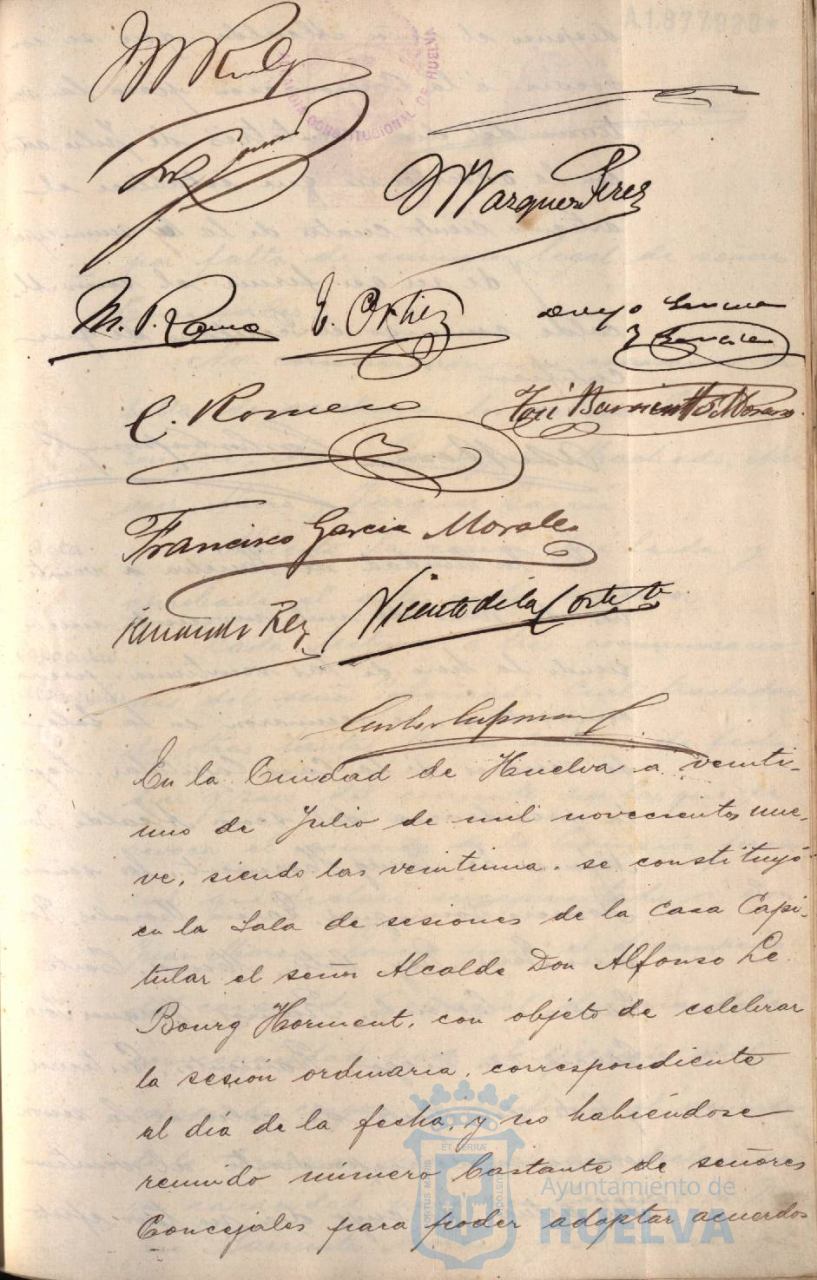 A1.877920*
ALCALDIA CONSTITUCIONAL DE HUELVA
M Vazquez Perez
E. Ortiz
C. Romero
José Barrientos Moreno
Francisco Garcia Morales
Fernando Rey Vicente de la Corte
En la Ciudad de Huelva a veinti-
uno de Julio de mil novecientos nue-
ve, siendo las veintiuna, se constituyó
en la Sala de sesiones de la Casa Capi-
tular el señor Alcalde Don Alfonso Le
Bourg Horment, con objeto de celebrar
la sesión ordinaria, correspondiente
al día de la fecha, y no habiéndose
reunido número bastante de señores
Concejales para poder adoptar acuerdos
Ayuntamiento de
HUELVA